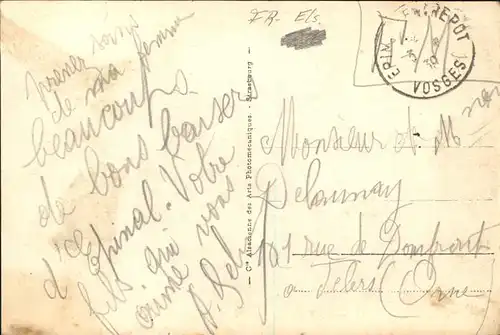 FR. Els.
prenez soins
de ma femme
beaucoups
de bons baisers
d'Epinal. Votre
fils qui vous
aime
— Cie Alsacienne des Arts Photomécaniques - Strasbourg —
ENTREPOT
EPIN
VOSGES
39
Monsieur et M
Delaunay
101 rue de Domfront
a Flers (Orne